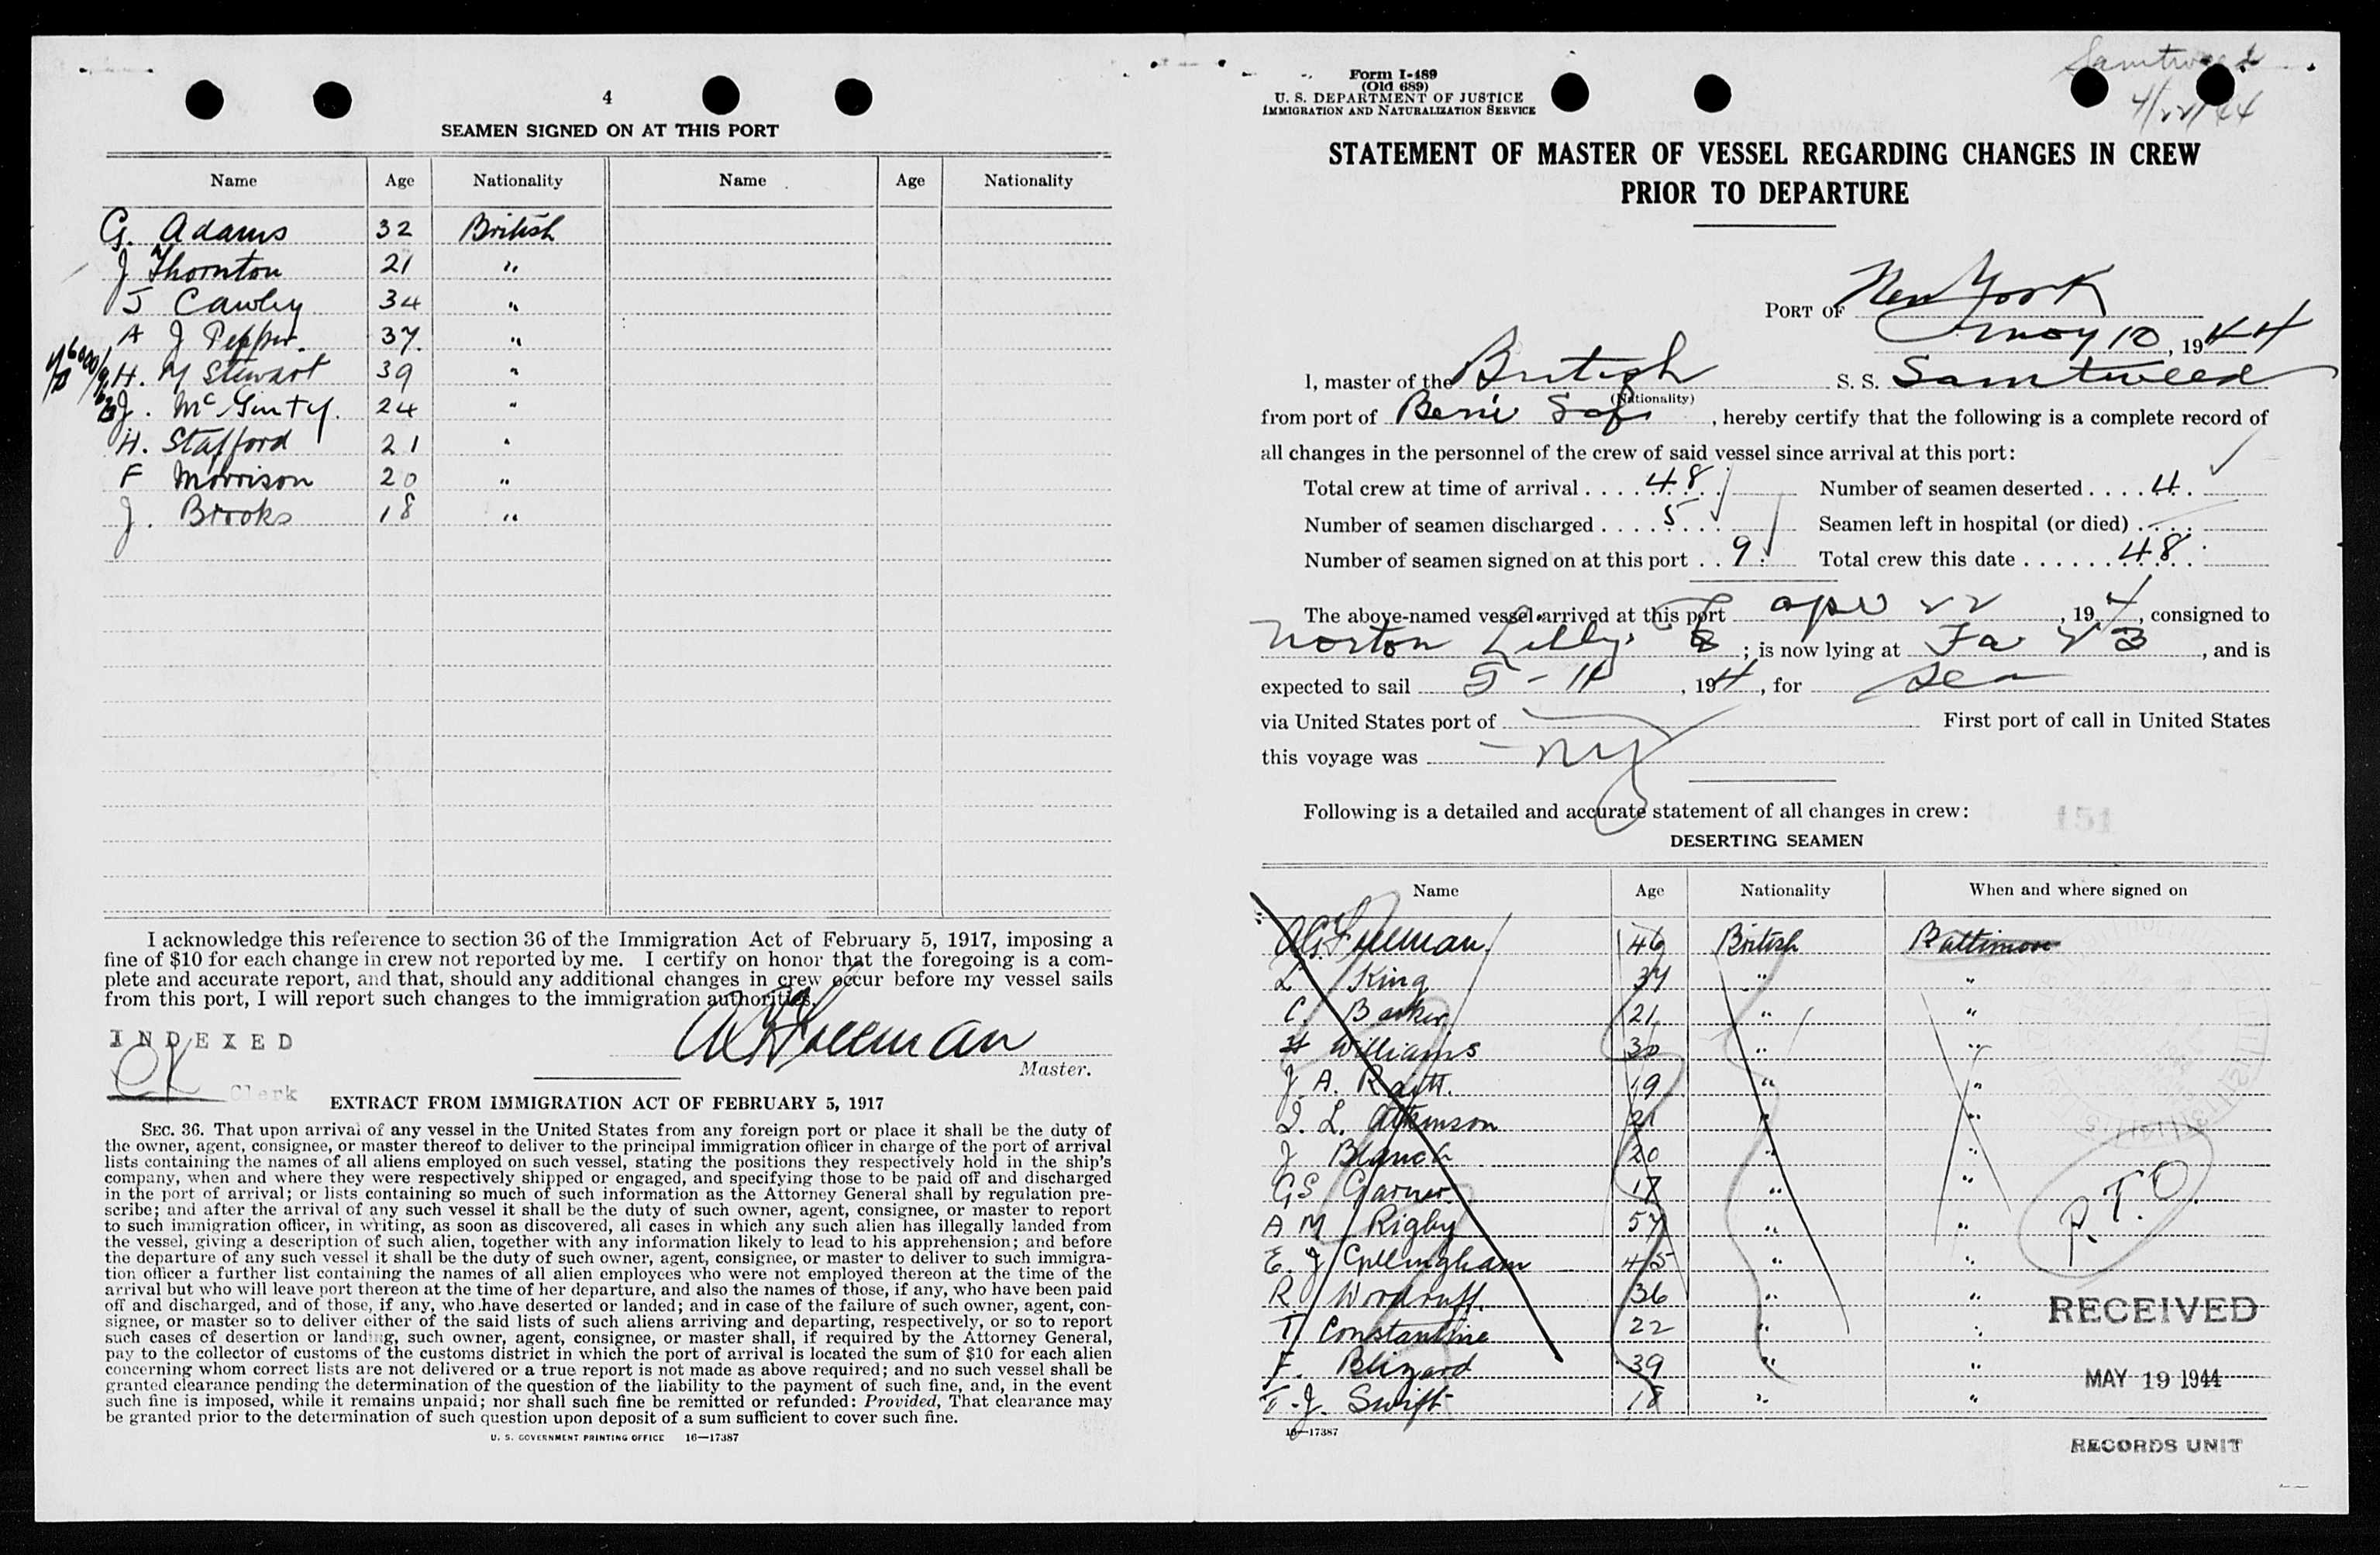 4
SEAMEN SIGNED ON AT THIS PORT
Name Age Nationality Name Age Nationality
G. Adams 32 British
J Thornton 21 "
J Cawley 34 "
A J Pepper. 37. "
H. M Stewart 39 "
J. McGinty. 24 "
H. Stafford 21 "
F Morrison 20 "
J. Brooks 18 "
I acknowledge this reference to section 36 of the Immigration Act of February 5, 1917, imposing a
fine of $10 for each change in crew not reported by me. I certify on honor that the foregoing is a com-
plete and accurate report, and that, should any additional changes in crew occur before my vessel sails
from this port, I will report such changes to the immigration authorities.
INDEXED
OK
Clerk
A G Freeman
Master.
EXTRACT FROM IMMIGRATION ACT OF FEBRUARY 5, 1917
SEC. 36. That upon arrival of any vessel in the United States from any foreign port or place it shall be the duty of
the owner, agent, consignee, or master thereof to deliver to the principal immigration officer in charge of the port of arrival
lists containing the names of all aliens employed on such vessel, stating the positions they respectively hold in the ship's
company, when and where they were respectively shipped or engaged, and specifying those to be paid off and discharged
in the port of arrival; or lists containing so much of such information as the Attorney General shall by regulation pre-
scribe; and after the arrival of any such vessel it shall be the duty of such owner, agent, consignee, or master to report
to such immigration officer, in writing, as soon as discovered, all cases in which any such alien has illegally landed from
the vessel, giving a description of such alien, together with any information likely to lead to his apprehension; and before
the departure of any such vessel it shall be the duty of such owner, agent, consignee, or master to deliver to such immigra-
tion officer a further list containing the names of all alien employees who were not employed thereon at the time of the
arrival but who will leave port thereon at the time of her departure, and also the names of those, if any, who have been paid
off and discharged, and of those, if any, who have deserted or landed; and in case of the failure of such owner, agent, con-
signee, or master so to deliver either of the said lists of such aliens arriving and departing, respectively, or so to report
such cases of desertion or landing, such owner, agent, consignee, or master shall, if required by the Attorney General,
pay to the collector of customs of the customs district in which the port of arrival is located the sum of $10 for each alien
concerning whom correct lists are not delivered or a true report is not made as above required; and no such vessel shall be
granted clearance pending the determination of the question of the liability to the payment of such fine, and, in the event
such fine is imposed, while it remains unpaid; nor shall such fine be remitted or refunded: Provided, That clearance may
be granted prior to the determination of such question upon deposit of a sum sufficient to cover such fine.
U. S. GOVERNMENT PRINTING OFFICE 16—17387
Samtweed
4/22/44
Form I-489
(Old 689)
U. S. DEPARTMENT OF JUSTICE
IMMIGRATION AND NATURALIZATION SERVICE
STATEMENT OF MASTER OF VESSEL REGARDING CHANGES IN CREW
PRIOR TO DEPARTURE
PORT OF New York
May 10, 1944
I, master of the British S. S. Samtweed
(Nationality)
from port of , hereby certify that the following is a complete record of
all changes in the personnel of the crew of said vessel since arrival at this port:
Total crew at time of arrival .... 48. Number of seamen deserted .... 4.
Number of seamen discharged .... 5 Seamen left in hospital (or died) ....
Number of seamen signed on at this port .. 9 Total crew this date ........ 48
The above-named vessel arrived at this port apr 22, 194, consigned to
Norton Lilly ; is now lying at , and is
expected to sail 5 - 11, 194, for Sea
via United States port of First port of call in United States
this voyage was NY
Following is a detailed and accurate statement of all changes in crew:
151
DESERTING SEAMEN
Name Age Nationality When and where signed on
A G Freeman 46 British Baltimore
L King 37 " "
C. Barker 21 " "
H Williams 30 " "
J. A. Raitt. 19 " "
J. L. Atkinson 21 " "
J Blanch 20 " "
G S Garner 17 " "
A M Rigby 57 " "
E. J Cullingham 45 " "
R. Woodruff. 36 " "
T Constantine 22 " "
F. Blizard 39 " "
T. J. Swift 18 " "
P.T.O.
RECEIVED
MAY 19 1944
16—17387
RECORDS UNIT